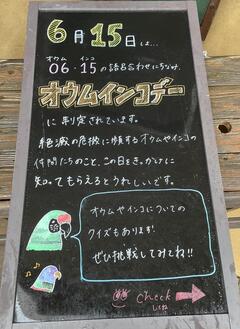 6月15日は…
オウム インコ
06・15の語呂合わせにちなみ、
オウムインコデー
に制定されています。
絶滅の危機に瀕するオウムやインコの
仲間たちのこと、この日をきっかけに
知ってもらえるとうれしいです。
オウムやインコについての
クイズもあります
ぜひ挑戦してみてね!!
check
してね